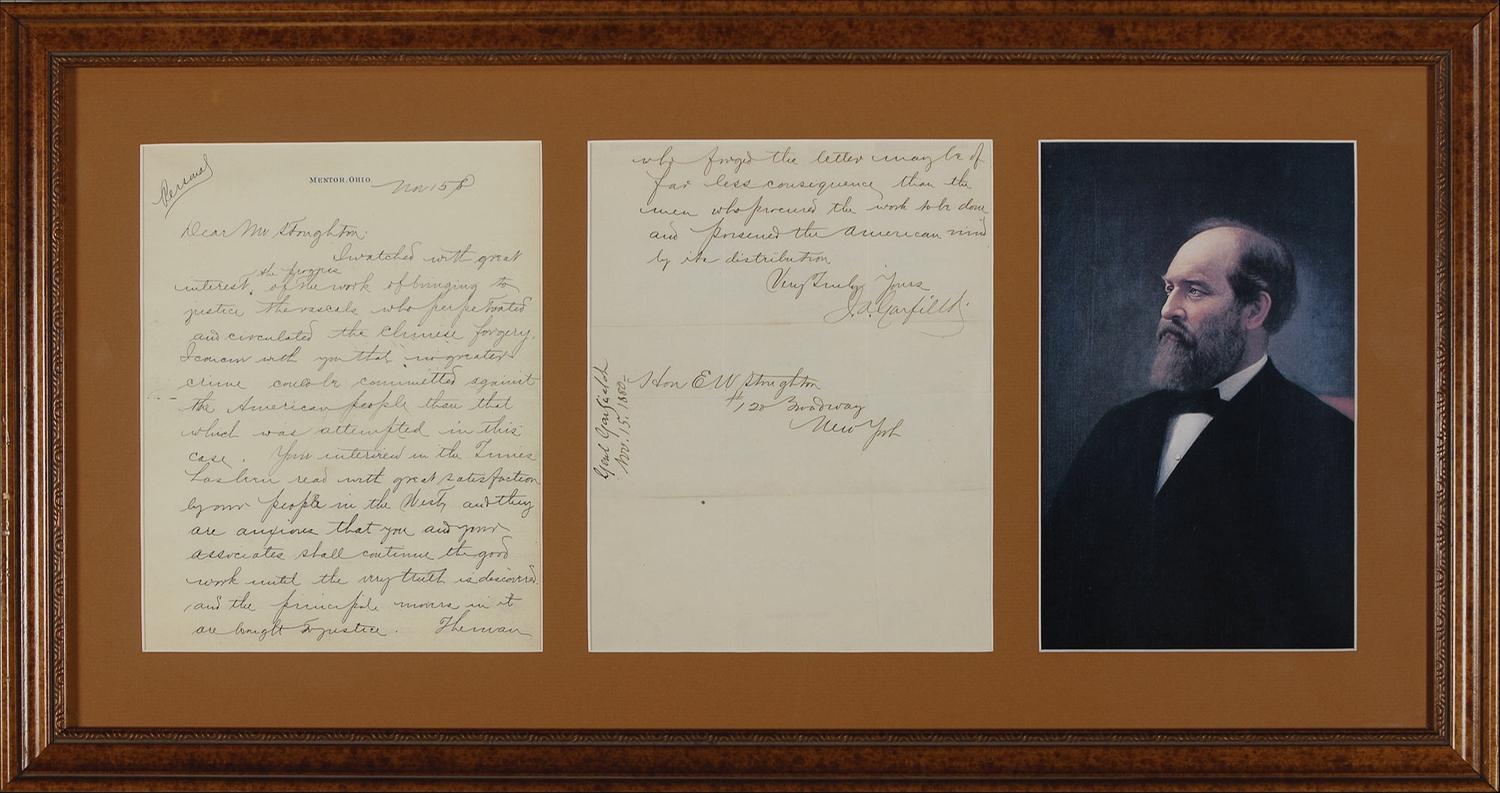 Personal
MENTOR, OHIO. Nov 15 80
Dear Mr Stoughton:
I watched with great
the progress
interest, of the work of bringing to
justice the rascals who perpetrated
and circulated the Chinese forgery.
I concur with you that no greater
crime could be committed against
the American people than that
which was attempted in this
case. Your interview in the Times
has been read with great satisfaction
by our people in the West, and they
are anxious that you and your
associates shall continue the good
work until the very truth is discovered
and the principle movers in it
are brought to justice. The man
who forged the letter may be of
far less consequence than the
men who procured the work to be done
and poisened the American mind
by its distribution
Very Truly Yours
J. A. Garfield.
Hon E W Stoughton
# 120 Broadway
New York
Genl Garfield
Nov. 15. 1880